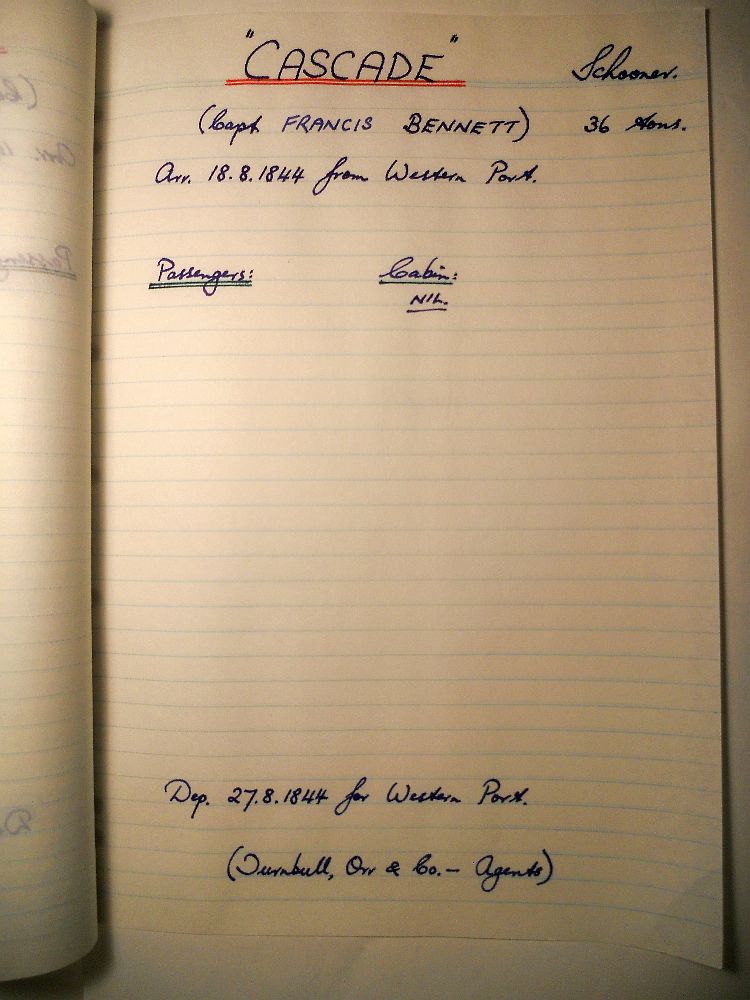 "CASCADE" Schooner.
(Capt FRANCIS BENNETT) 36 tons.
Arr. 18.8.1844 from Western Port.
Passengers: Cabin:
NIL.
Dep. 27.8.1844 for Western Port.
(Turnbull, Orr & Co. — Agents)